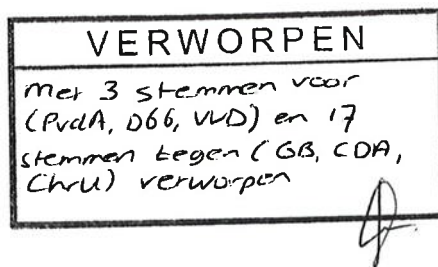 VERWORPEN
met 3 stemmen voor
(PvdA, D66, VVD) en 17
stemmen tegen (GB, CDA,
ChrU) verworpen